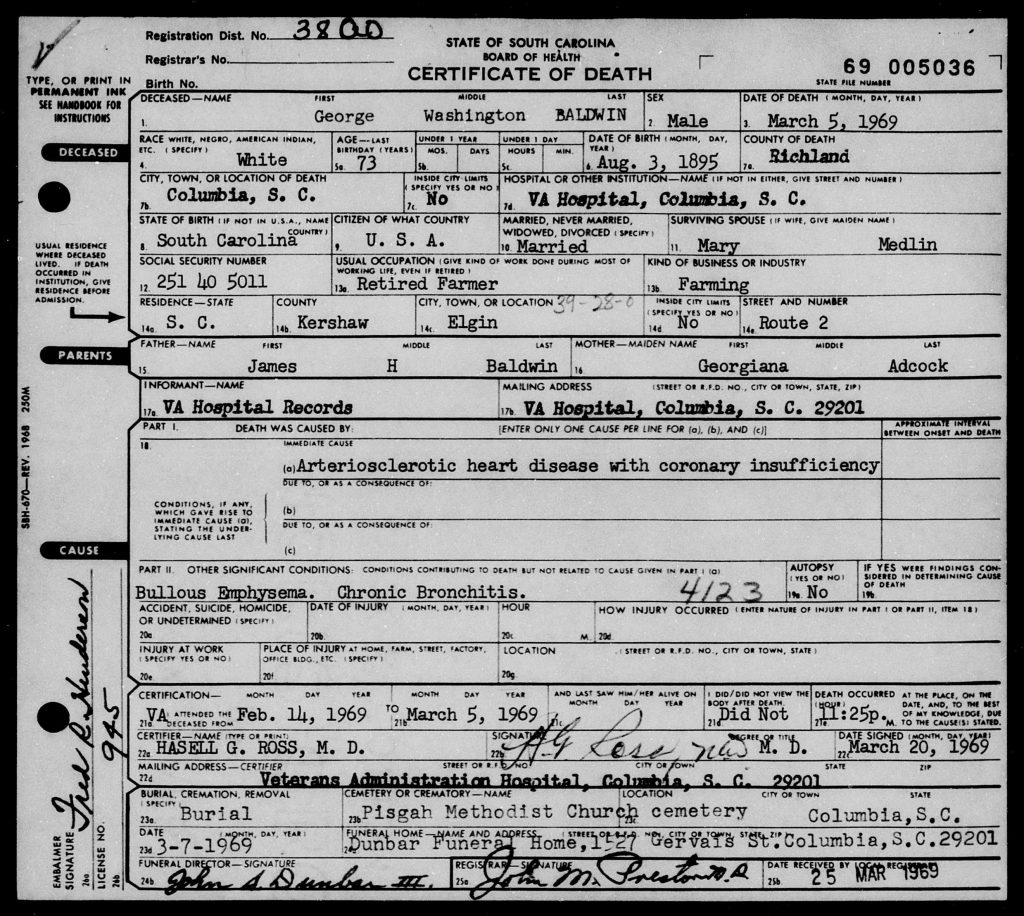 Registration Dist. No. 3800
Registrar's No.
Birth No.
STATE OF SOUTH CAROLINA
BOARD OF HEALTH
CERTIFICATE OF DEATH
69 005036
STATE FILE NUMBER
TYPE, OR PRINT IN
PERMANENT INK
SEE HANDBOOK FOR
INSTRUCTIONS
DECEASED—NAME FIRST MIDDLE LAST SEX DATE OF DEATH (MONTH, DAY, YEAR)
1. George Washington BALDWIN 2. Male 3. March 5, 1969
DECEASED
RACE WHITE, NEGRO, AMERICAN INDIAN, ETC. (SPECIFY) AGE—LAST BIRTHDAY (YEARS) UNDER 1 YEAR MOS. DAYS UNDER 1 DAY HOURS MIN. DATE OF BIRTH (MONTH, DAY, YEAR) COUNTY OF DEATH
4. White 5a. 73 5b. 5c. 6. Aug. 3, 1895 7a. Richland
CITY, TOWN, OR LOCATION OF DEATH INSIDE CITY LIMITS (SPECIFY YES OR NO) HOSPITAL OR OTHER INSTITUTION—NAME (IF NOT IN EITHER, GIVE STREET AND NUMBER)
7b. Columbia, S. C. 7c. No 7d. VA Hospital, Columbia, S. C.
STATE OF BIRTH (IF NOT IN U.S.A., NAME COUNTRY) CITIZEN OF WHAT COUNTRY MARRIED, NEVER MARRIED, WIDOWED, DIVORCED (SPECIFY) SURVIVING SPOUSE (IF WIFE, GIVE MAIDEN NAME)
8. South Carolina 9. U. S. A. 10. Married 11. Mary Medlin
USUAL RESIDENCE
WHERE DECEASED
LIVED. IF DEATH
OCCURRED IN
INSTITUTION, GIVE
RESIDENCE BEFORE
ADMISSION.
SOCIAL SECURITY NUMBER USUAL OCCUPATION (GIVE KIND OF WORK DONE DURING MOST OF WORKING LIFE, EVEN IF RETIRED) KIND OF BUSINESS OR INDUSTRY
12. 251 40 5011 13a. Retired Farmer 13b. Farming
RESIDENCE—STATE COUNTY CITY, TOWN, OR LOCATION 39-28-0 INSIDE CITY LIMITS (SPECIFY YES OR NO) STREET AND NUMBER
14a. S. C. 14b. Kershaw 14c. Elgin 14d. No 14e. Route 2
PARENTS
FATHER—NAME FIRST MIDDLE LAST MOTHER—MAIDEN NAME FIRST MIDDLE LAST
15. James H Baldwin 16. Georgiana Adcock
INFORMANT—NAME MAILING ADDRESS (STREET OR R.F.D. NO., CITY OR TOWN, STATE, ZIP)
17a. VA Hospital Records 17b. VA Hospital, Columbia, S. C. 29201
SBH-670—REV. 1968 250M
PART I. DEATH WAS CAUSED BY: [ENTER ONLY ONE CAUSE PER LINE FOR (a), (b), AND (c)] APPROXIMATE INTERVAL BETWEEN ONSET AND DEATH
18. IMMEDIATE CAUSE
(a) Arteriosclerotic heart disease with coronary insufficiency
DUE TO, OR AS A CONSEQUENCE OF:
CONDITIONS, IF ANY,
WHICH GAVE RISE TO
IMMEDIATE CAUSE (a),
STATING THE UNDER-
LYING CAUSE LAST
(b)
DUE TO, OR AS A CONSEQUENCE OF:
(c)
CAUSE
PART II. OTHER SIGNIFICANT CONDITIONS: CONDITIONS CONTRIBUTING TO DEATH BUT NOT RELATED TO CAUSE GIVEN IN PART I (a) AUTOPSY (YES OR NO) IF YES WERE FINDINGS CONSIDERED IN DETERMINING CAUSE OF DEATH
Bullous Emphysema. Chronic Bronchitis. 4123 19a. No 19b.
ACCIDENT, SUICIDE, HOMICIDE, OR UNDETERMINED (SPECIFY) DATE OF INJURY (MONTH, DAY, YEAR) HOUR HOW INJURY OCCURRED (ENTER NATURE OF INJURY IN PART I OR PART II, ITEM 18)
20a. 20b. 20c. M. 20d.
INJURY AT WORK (SPECIFY YES OR NO) PLACE OF INJURY AT HOME, FARM, STREET, FACTORY, OFFICE BLDG., ETC. (SPECIFY) LOCATION (STREET OR R.F.D. NO., CITY OR TOWN, STATE)
20e. 20f. 20g.
CERTIFICATION— MONTH DAY YEAR MONTH DAY YEAR AND LAST SAW HIM/HER ALIVE ON MONTH DAY YEAR I DID/DID NOT VIEW THE BODY AFTER DEATH. DEATH OCCURRED AT THE PLACE, ON THE DATE, AND, TO THE BEST OF MY KNOWLEDGE, DUE TO THE CAUSE(S) STATED.
21a. VA ATTENDED THE DECEASED FROM Feb. 14, 1969 TO 21b. March 5, 1969 21c. 21d. Did Not 11:25p. M.
CERTIFIER—NAME (TYPE OR PRINT) SIGNATURE DEGREE OR TITLE DATE SIGNED (MONTH, DAY, YEAR)
22a. HASELL G. ROSS, M. D. 22b. H G Ross M. D. 22c. March 20, 1969
MAILING ADDRESS—CERTIFIER STREET OR R.F.D. NO. CITY OR TOWN STATE ZIP
22d. Veterans Administration Hospital, Columbia, S. C. 29201
BURIAL, CREMATION, REMOVAL (SPECIFY) CEMETERY OR CREMATORY—NAME LOCATION CITY OR TOWN STATE
23a. Burial 23b. Pisgah Methodist Church cemetery Columbia, S.C.
DATE (MONTH, DAY, YEAR) FUNERAL HOME—NAME AND ADDRESS (STREET OR R.F.D. NO., CITY OR TOWN, STATE, ZIP)
23d. 3-7-1969 Dunbar Funeral Home, 1527 Gervais St. Columbia, S.C. 29201
FUNERAL DIRECTOR—SIGNATURE REGISTRAR—SIGNATURE DATE RECEIVED BY LOCAL REGISTRAR
24b. John A. Dunbar III. 25a. John M. Preston M.D 25b. 25 MAR 1969
EMBALMER SIGNATURE 26a Fred R. Henderson
LICENSE NO. 26b 945